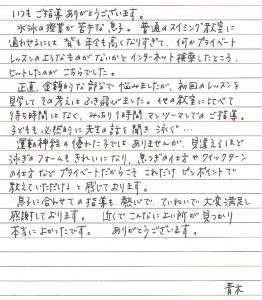 いつもご指導ありがとうございます。
水泳の授業が苦手な息子。普通のスイミング教室に
通わせるには背も年令も高くなりすぎて、何かプライベート
レッスンのようなものがないかとインターネット検索したところ、
ヒットしたのがこちらでした。
正直、金額的な部分で悩みましたが、初回のレッスンを
見学してその考えはふき飛びました。他の教室に比べて
待ち時間はなく、みっちり1時間マンツーマンでのご指導。
子どもも必然的に先生の話を聞き泳ぐ…
運動神経の優れた子ではありませんが、見違えるほど
泳ぎのフォームもきれいになり、息つぎの仕方やクイックターン
の仕方などプライベートだからこそこれだけピンポイントで
教えていただけると感じております。
息子に合わせての指導も熱心で、ていねいで大変満足し
感謝しております。近くでこんなによい所が見つかり
本当によかったです。ありがとうございます。
青木